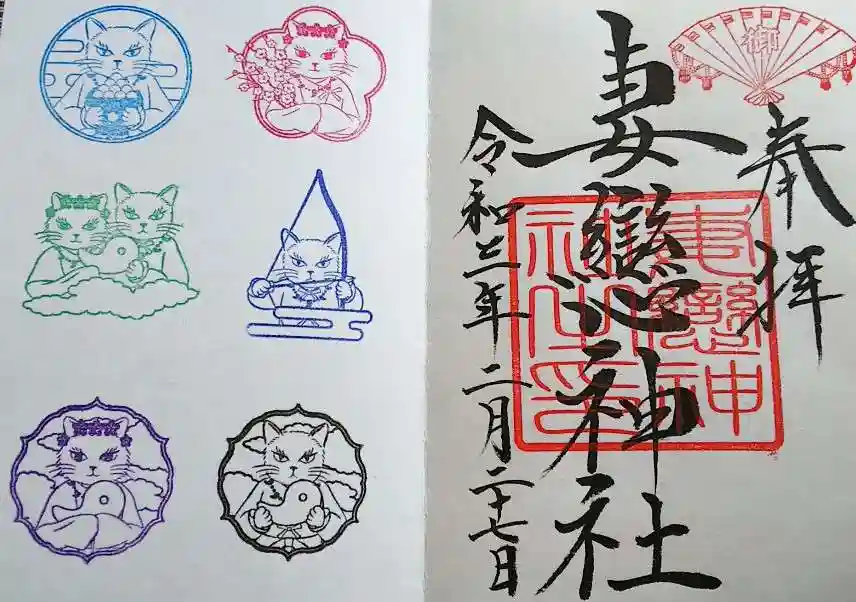 御
奉拝
妻戀神社
妻戀神
社之印
令和三年二月二十七日